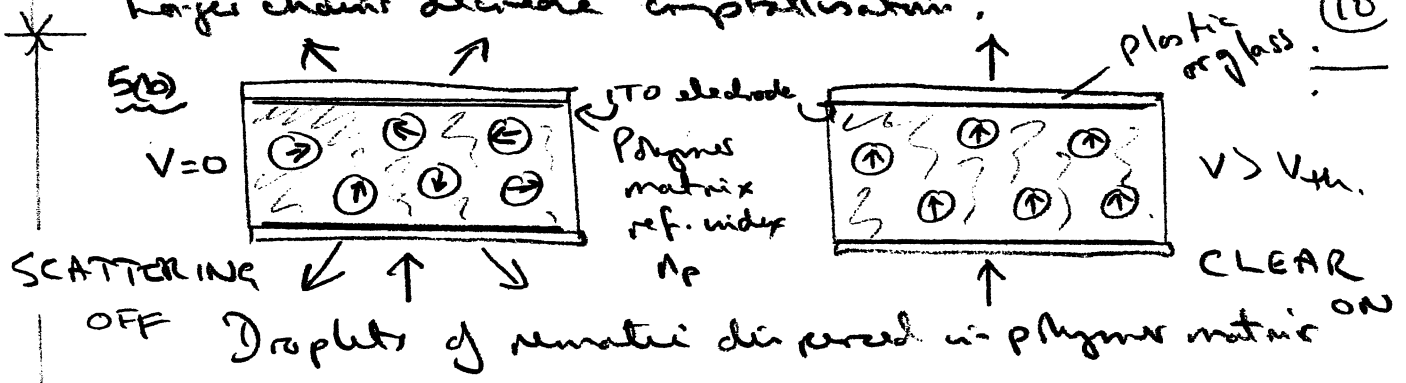 Longer chains decrease crystallisation.
(10)
5(b)
V=0
ITO electrode
plastic
or glass.
Polymer
matrix
ref. index
np
V > Vth.
SCATTERING
OFF
CLEAR
ON
Droplets of nematic dispersed in polymer matrix